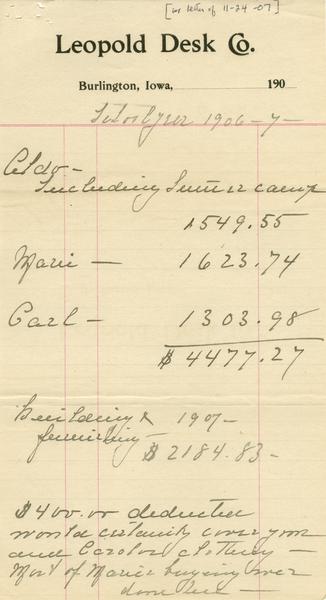 [in letter of 11-24-07]
Leopold Desk Co.
Burlington, Iowa, 190
School year 1906-7-
Aldo-
Including Summer camp
1549.55
Marie - 1623.74
Carl - 1303.98
$ 4477.27
Building & 1907-
furnishing- $2184.83-
$400.00 deducted
would certainly cover your
and Carolos clothing -
Most of Maries buying was
done here -